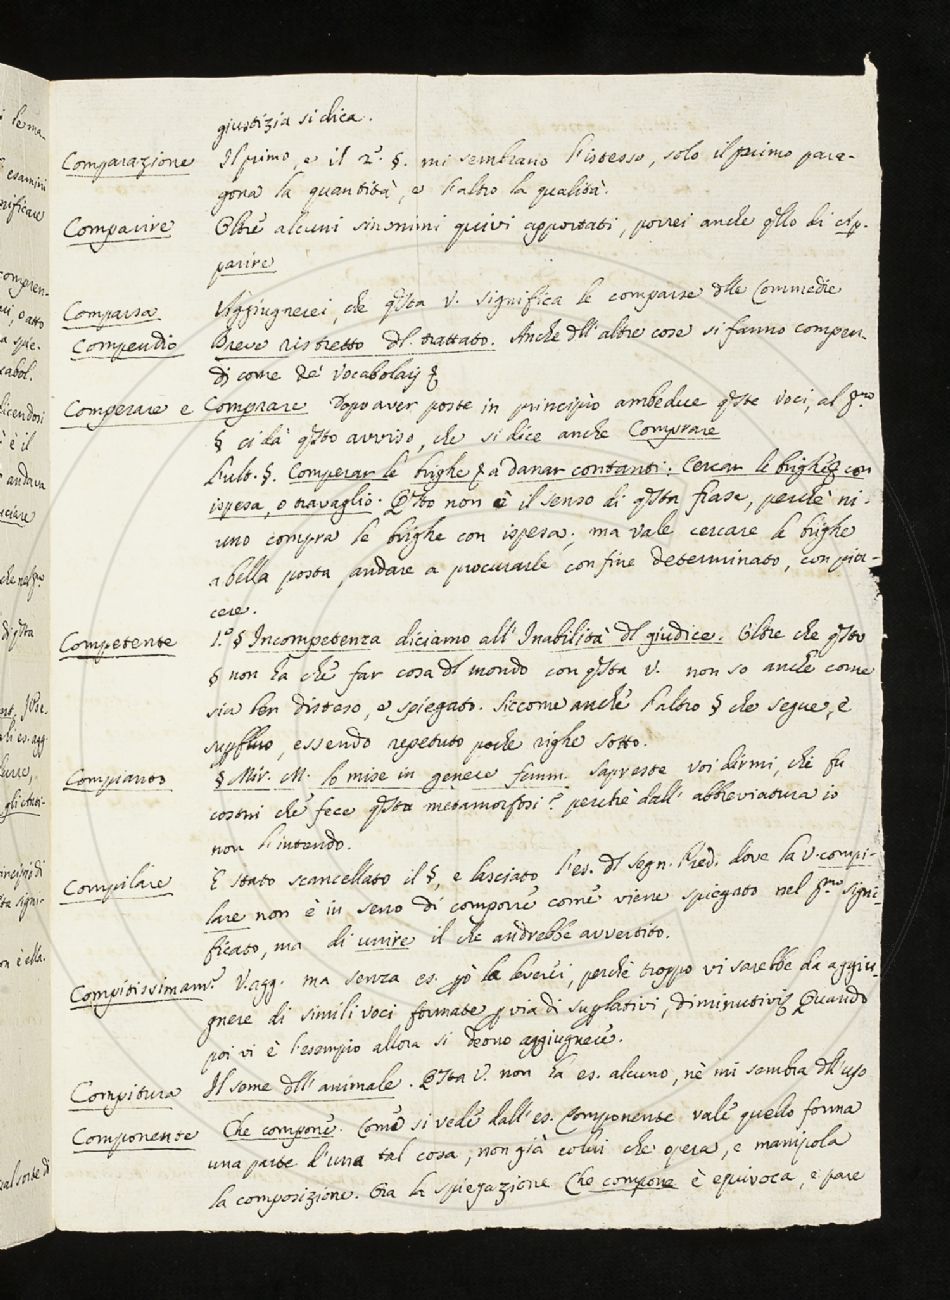 giustizia si dica.
Comparazione Il primo, e il 2.° §. mi sembrano l'istesso, solo il primo para-
gona la quantità, e l'altro la qualità.
Comparire Oltre alcuni sinonimi quivi apportati, porrei anche qllo di Ap-
parire
Comparsa Aggiugnerei, che qsta V. significa le comparse dlle Commedie
Compendio Breve ristretto dl trattato. Anche dll'altre cose si fanno compen-
di come de' Vocabolarj &
Comperare e Comprare Dopo aver poste in principio ambedue qste voci, al pmo
§ ci dà qsto avviso, che si dice anche Comprare
Pulb. §. Comperar le brighe & a danar contanti: Cercar le brighe & con
ispesa, o travaglio. Qsto non è il senso di qsta frase, perchè ni-
uno compra le brighe con ispesa; ma vale cercare le brighe
a bella posta andare a procurarle con fine determinato, con pia-
cere.
Competente 1.° § Incompetenza diciamo all'Inabilità dl giudice. Oltre che qsto
§ non ha che far cosa dl mondo con qsta V. non so anche come
sia ben disteso, e spiegato. Siccome anche l'altro § che segue, è
supfluo, essendo repetuto poche righe sotto.
Compianto § Mir. M. lo mise in genere femm. Sapreste voi dirmi, chi fu
costui che fece qsta metamorfosi? perchè dall'abbreviatura io
non l'intendo.
Compilare È stato scancellato il §, e lasciato l'es. dl Segn. Pred. dove la V. compi-
lare non è in senso di comporre come viene spiegato nel pmo signi-
ficato, ma di unire il che andrebbe avvertito.
Compitissimamte V. agg. ma senza es. pò la leverei, perchè troppo vi sarebbe da aggiu-
gnere di simili voci formate p via di suplativi, diminutivi & Quando
poi vi è l'esempio allora si deono aggiugnere.
Compitura Il seme dll'animale. Qsta V. non ha es. alcuno, nè mi sembra dll'uso
Componente Che compone. Come si vede dall'es. Componente vale quello forma
una parte d'una tal cosa, non già colui che opera, e manipola
la composizione. Ora la spiegazione Che compone è equivoca, e pare